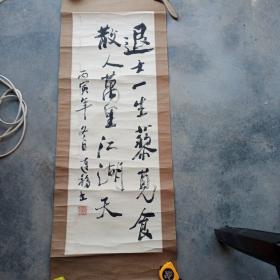 退士一生藜苋食
散人萬里江湖天
丙寅年冬月